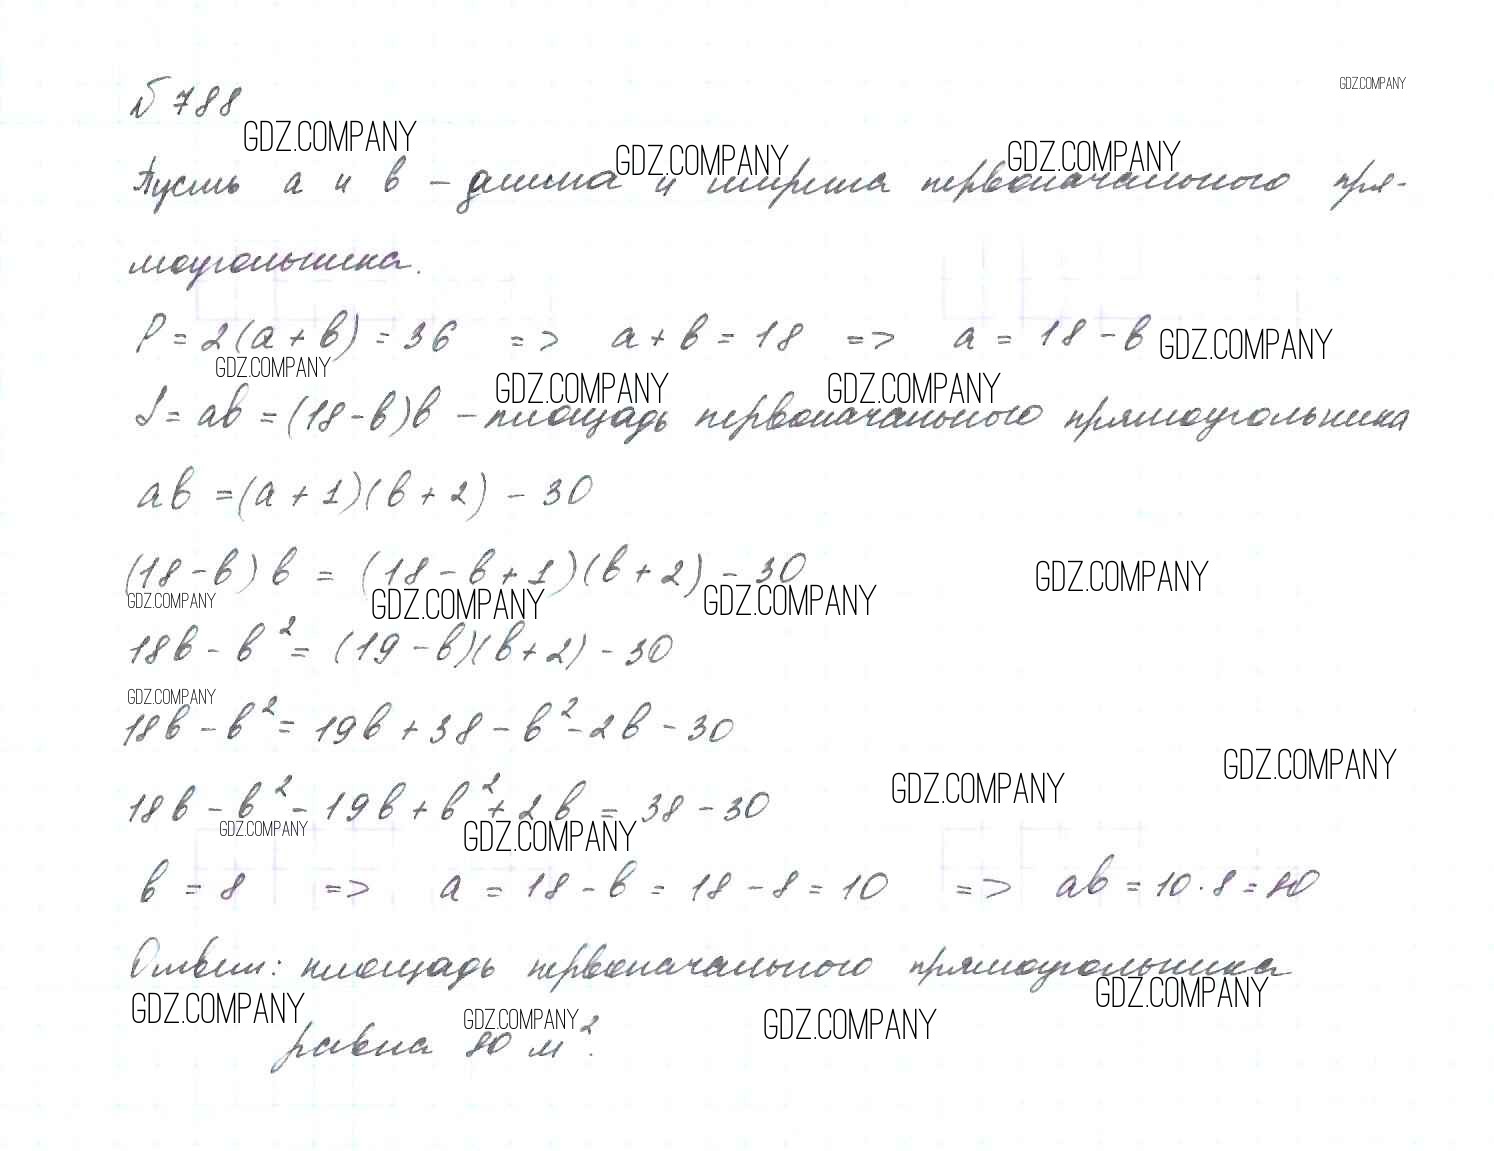 № 788
GDZ.COMPANY
GDZ.COMPANY GDZ.COMPANY GDZ.COMPANY
Пусть a и b – длина и ширина первоначального пря-
моугольника.
P = 2(a + b) = 36 => a + b = 18 => a = 18 - b GDZ.COMPANY
GDZ.COMPANY GDZ.COMPANY GDZ.COMPANY
S = ab = (18 - b)b – площадь первоначального прямоугольника
ab = (a + 1)(b + 2) - 30
(18 - b)b = (18 - b + 1)(b + 2) - 30 GDZ.COMPANY
GDZ.COMPANY GDZ.COMPANY GDZ.COMPANY
18b - b² = (19 - b)(b + 2) - 30
GDZ.COMPANY
18b - b² = 19b + 38 - b² - 2b - 30
GDZ.COMPANY GDZ.COMPANY
18b - b² - 19b + b² + 2b = 38 - 30
GDZ.COMPANY GDZ.COMPANY
b = 8 => a = 18 - b = 18 - 8 = 10 => ab = 10 · 8 = 80
Ответ: площадь первоначального прямоугольника
GDZ.COMPANY GDZ.COMPANY GDZ.COMPANY GDZ.COMPANY
равна 80 м².